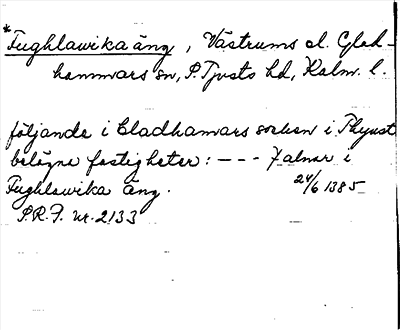 *Fughlawika äng, Västrums el. Glad-
hammars sn, S. Tjusts hd, Kalm. l.
följande i Gladhamars socken i Thyust
belägne fastigheter: --- 7 alnar i
Fughlawika äng. 24/6 1385
P.R.F. nr. 2133